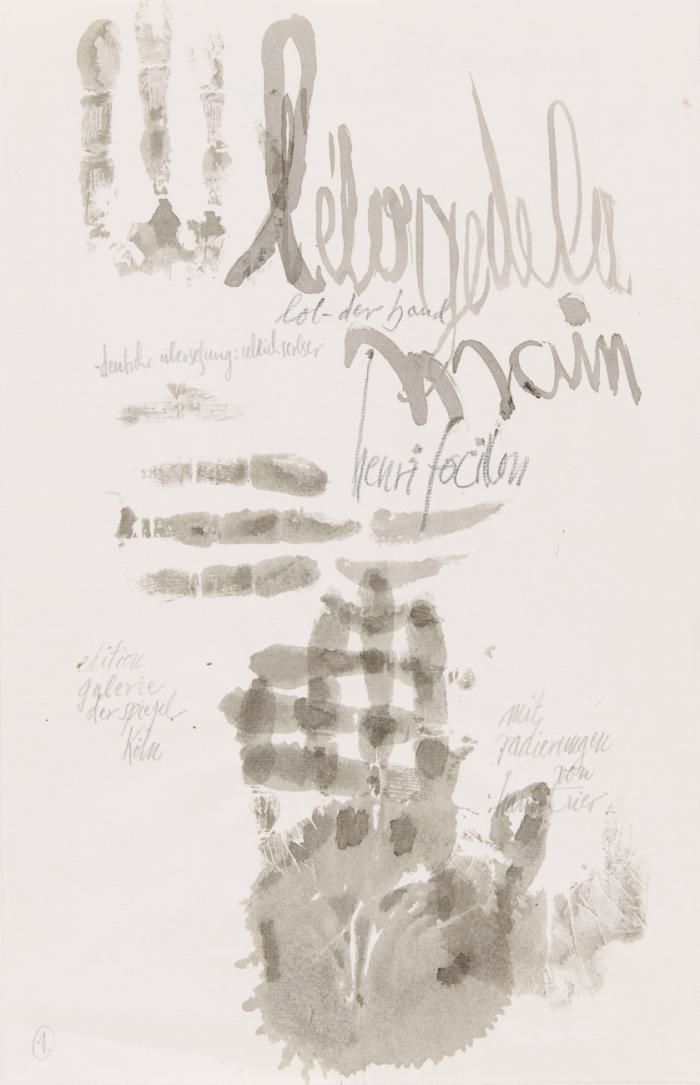 l'éloge de la
lob der hand
main
deutsche übersetzung:
henri focillon
edition
galerie
der spiegel
Köln
mit
radierungen
von
trier
1